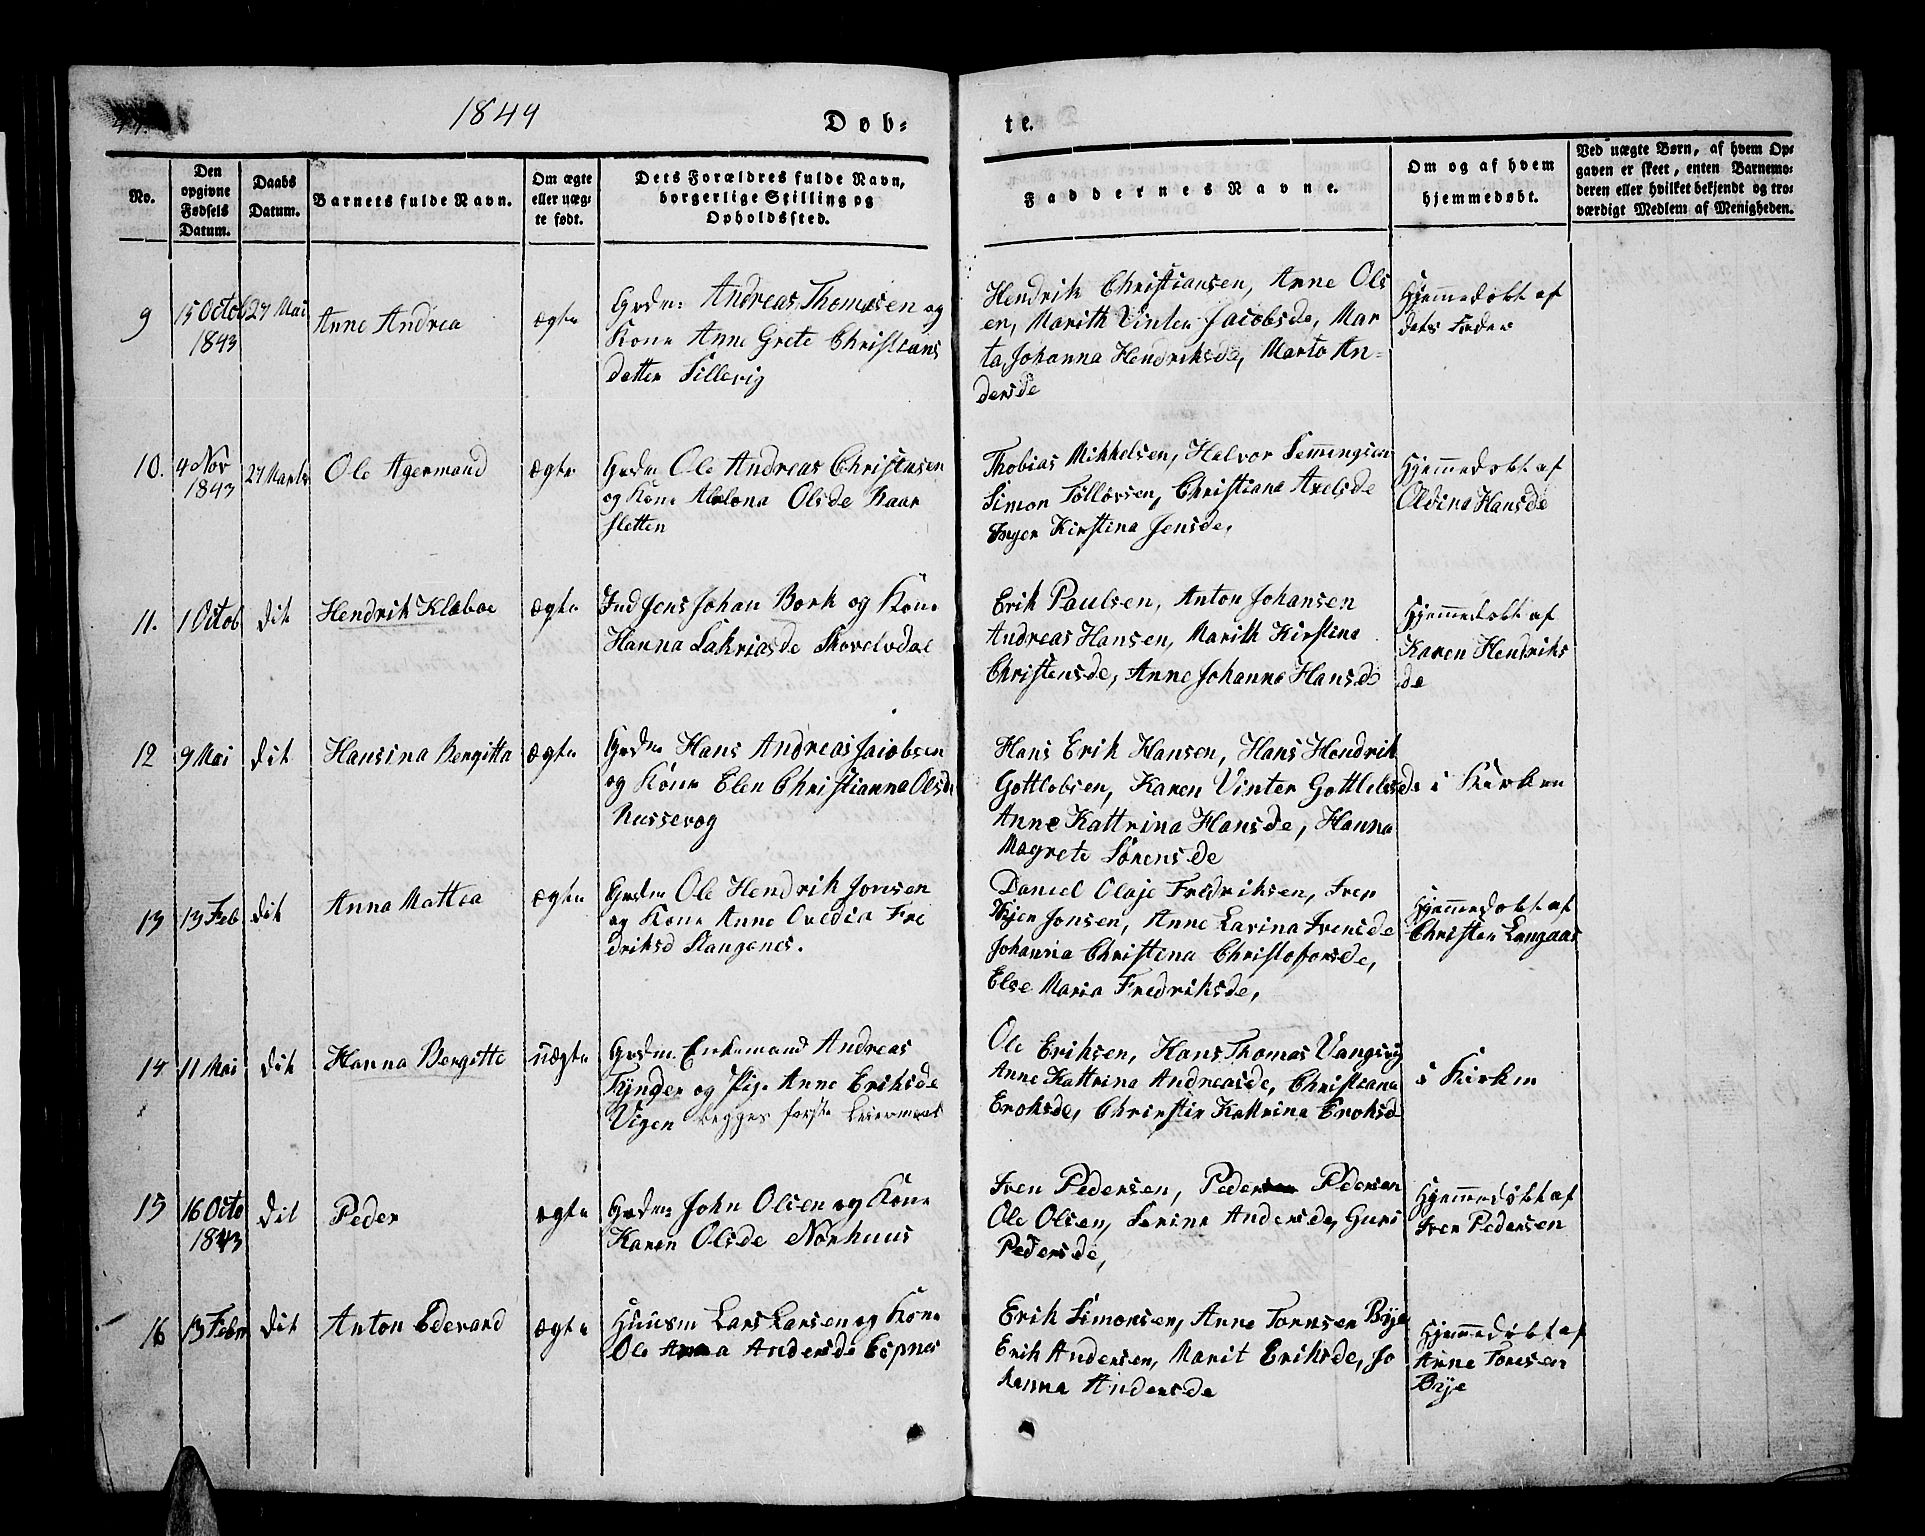 1844
Døb-
te.
No.
Den
opgivne
Fødsels
Datum.
Daabs
Datum.
Barnets fulde Navn.
Om ægte
eller uæg-
te født.
Dets Forældres fulde Navn,
borgerlige Stilling og
Opholdssted.
Faddernes Navne.
Om og af hvem
hjemmedøbt.
Ved uægte Børn, af hvem Op-
gaven er skeet, enten Barnemo-
deren eller hvilket bekjendt og tro-
værdigt Medlem af Menigheden.
9
15 Octob
1843
27 Mai
Anne Andrea
ægte
Grdm: Andreas Thomesen og
Kone Anne Grete Christians
datter Sillevig
Hendrik Christiansen, Anne Ols
en, Marith Vinter Jacobsde, Mar
ta, Johanna Hendriksde, Marta An-
dersde
Hjemmedøbt af
dets Fader
10.
4 Nov
1843
27 Marts
Ole Agermand
ægte
Grdm Ole Andreas Christensen
og Kone Olsde Kaar
sletten
Thobias Mikkelsen, Helvor Semmingsen
Simon Tølløvsen, Christiana Axelsde
Inger Kirstina Jensde,
Hjemmedøbt af
Oldina Hansde
11.
1 Octob
dit
Hendrik Klæboe
ægte
Ind Jens Johan Bork og Kone
Hanna Sakriasde Skovelvdal
Erik Paulsen, Anton Johansen
Andreas Hansen, Marith Kirstina
Christensde, Anne Johanna Hansde
Hjemmedøbt af
Karen Hendriks
de
12
9 Mai
dit
Hansina Bergitta
ægte
Grdm Hans Andreas Jacobsen
og Kone Elen Christianna Olsde
Russevog
Hans Erik Hansen, Hans Hendrik
Gottlobsen, Karen Vinter Gottlebsde
Anne Kattrina Hansde, Hanna
Magrete Sørensde
i Kirken
13
13 Feb
dit
Anna Mattea
ægte
Grdm Ole Hendrik Jonsen
og Kone Anne Ovedia Fre
driksd Stangenes.
Daniel Olaje Fredriksen, Iver
Kjer Jonsen, Anne Larina Ivensde
Johanna Christina Christofersde,
Else Maria Fredriksde,
Hjemmedøbt af
Christen Langaas
14
11 Mai
dit
Hanna Bergitte
uægte
Grdm. Enkemand Andreas
Tynger og Pige Anne Eriksde
Vigen begges første Leiermaal
Ole Eriksen, Hans Thomas Vangsvig
Anne Kattrina Andreasde, Christiana
Eroksde, Christie Kattrina Eroksd
i Kirken
15
16 Octo
1843
dit
Peder
ægte
Grdm: John Olsen og Kone
Karen Olsde Norhuus
Iver Pedersen, Peder Pedersen
Ole Olsen, Serine Andersde, Guri
Pedersde,
Hjemmedøbt af
Iver Pedersen
16
13 Febr
dit
Anton Edevard
ægte
Huusm Lars Larsen og Kone
Ole Anna Andersde Espnes
Erik Simonsen, Anne Toresen Bye
Erik Andersen, Marit Eriksde, Jo
hanna Andersde
Hjemmedøbt af
Anne Toresen
Bye